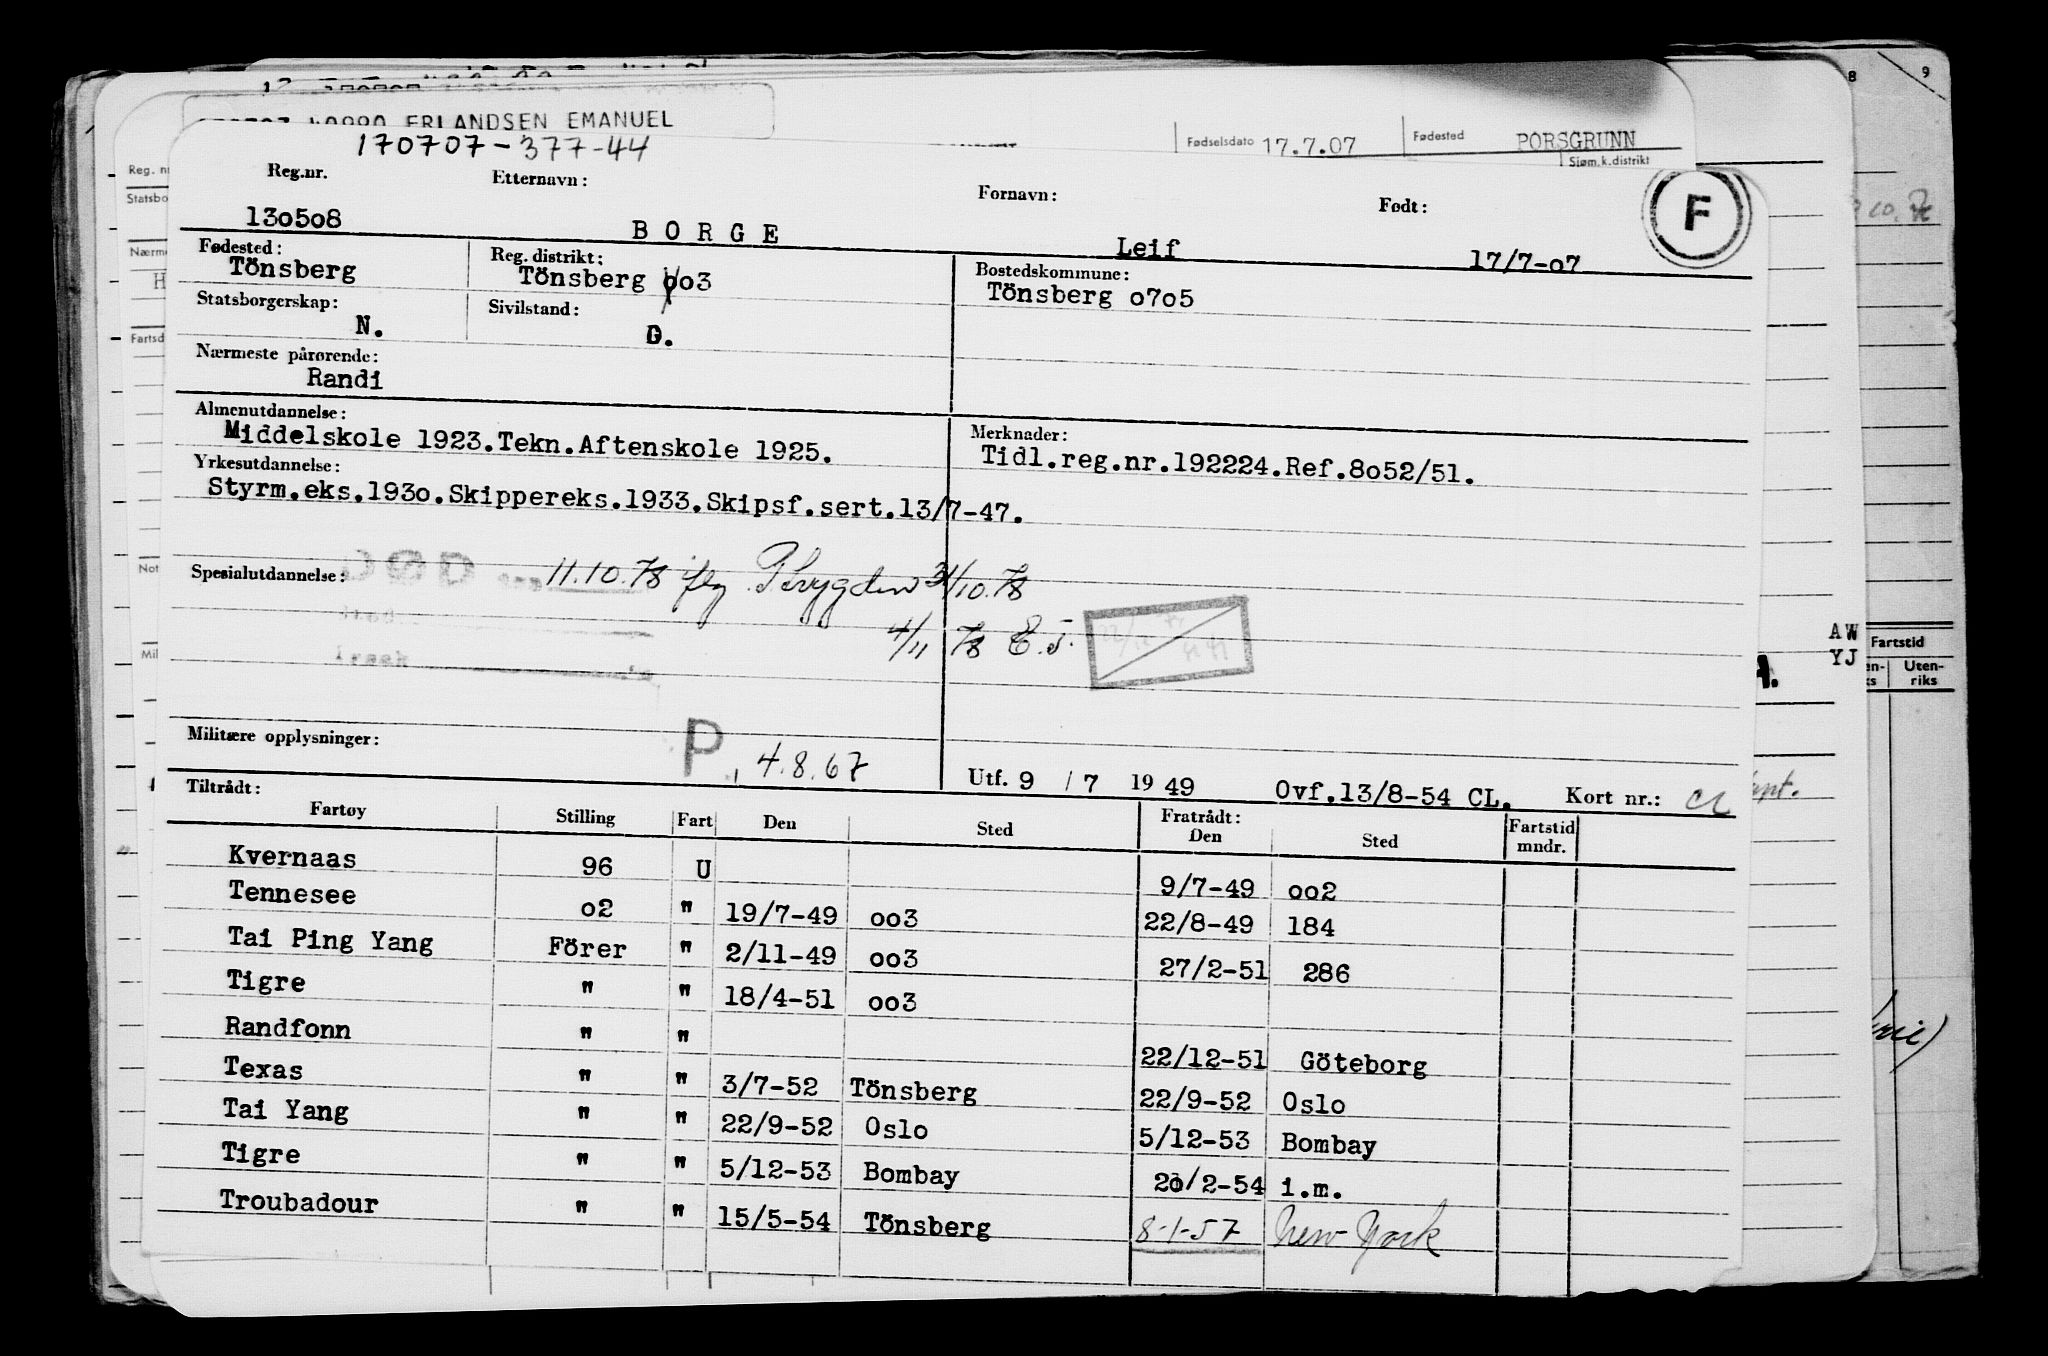 8 9
ERLANDSEN EMANUEL
170707-377-44
Fødselsdato 17.7.07 Fødested PORSGRUNN
Sjøm.k.distrikt
Reg. nr
Statsbo
Nærme
H
Fartsd
Not
Mil
Reg.nr. Etternavn: Fornavn: Født: F
130508 BORGE Leif 17/7-07
Fødested: Reg. distrikt: Bostedskommune:
Tönsberg Tönsberg 003 Tönsberg 0705
Statsborgerskap: Sivilstand:
N. G.
Nærmeste pårørende:
Randi
Almenutdannelse: Merknader:
Middelskole 1923.Tekn.Aftenskole 1925. Tidl.reg.nr.192224.Ref.8052/51.
Yrkesutdannelse:
Styrm.eks.1930.Skippereks.1933.Skipsf.sert.13/7-47.
Spesialutdannelse: 11.10.78 iflg. Trygden 31/10.78
4/11 78 E.J.
AW
YJ
Fartstid
Uten-
riks
Militære opplysninger: P 4.8.67
Utf. 9 / 7 1949 Ovf.13/8-54 CL. Kort nr.: CL
Tiltrådt: Fratrådt:
Fartøy Stilling Fart Den Sted Den Sted Fartstid mndr.
Kvernaas 96 U 9/7-49 002
Tennesee 02 " 19/7-49 003 22/8-49 184
Tai Ping Yang Förer " 2/11-49 003 27/2-51 286
Tigre " " 18/4-51 003
Randfonn " " 22/12-51 Göteborg
Texas " " 3/7-52 Tönsberg 22/9-52 Oslo
Tai Yang " " 22/9-52 Oslo 5/12-53 Bombay
Tigre " " 5/12-53 Bombay 20/2-54 i.m.
Troubadour " " 15/5-54 Tönsberg 8-1-57 New York